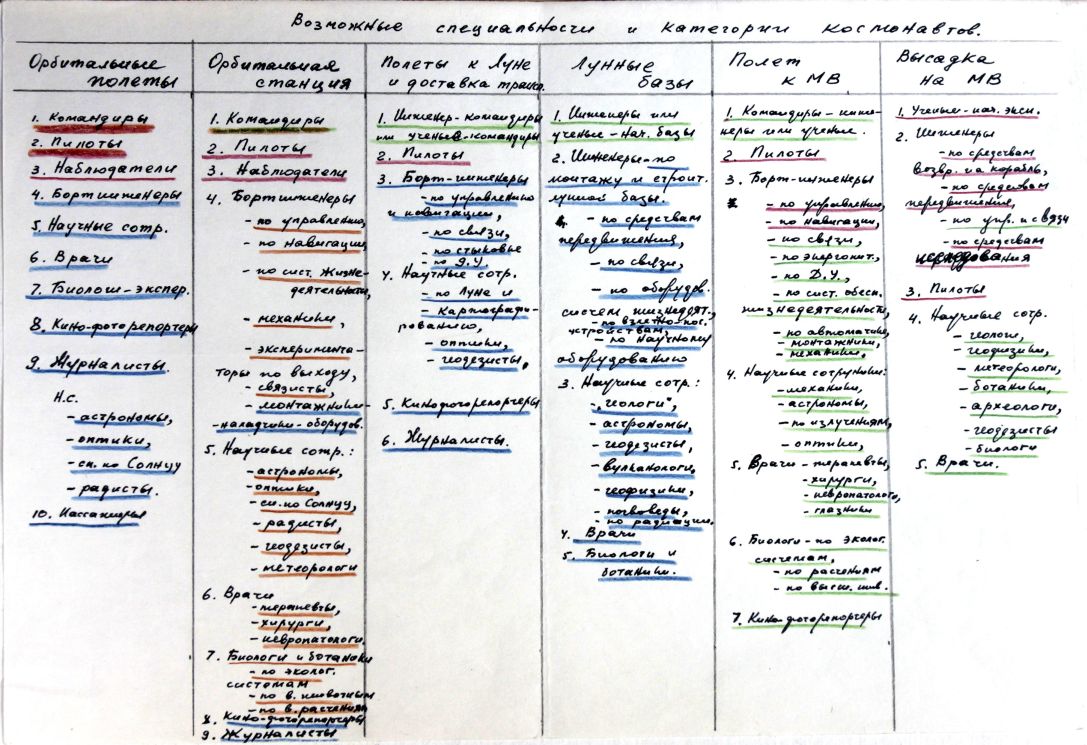 Возможные специальности и категории космонавтов.
Орбитальные
полеты
1. Командиры
2. Пилоты
3. Наблюдатели
4. Бортинженеры
5. Научные сотр.
6. Врачи
7. Биологи-экспер.
8. Кино-фоторепортеры
9. Журналисты.
Н.С.
- астрономы,
- оптики,
- сп. по Солнцу
- радисты.
10. Пассажиры
Орбитальная
станция
1. Командиры
2. Пилоты
3. Наблюдатели
4. Бортинженеры
- по управлению,
- по навигации,
- по сист. жизне-
деятельности,
- механики,
- эксперимента-
торы по выходу,
- связисты,
- монтажники-
- наладчики-оборудов.
5. Научные сотр.:
- астрономы,
- оптики,
- сп. по Солнцу,
- радисты,
- геодезисты,
- метеорологи
6. Врачи
- терапевты,
- хирурги,
- невропатологи.
7. Биологи и ботаники
- по эколог.
системам
- по в. животным
- по в. растениям
8. Кино-фоторепортеры
9. Журналисты
Полеты к Луне
и доставка трансп.
1. Инженер-командиры
или ученые-командиры
2. Пилоты
3. Борт-инженеры
- по управлению
и навигации,
- по связи,
- по стыковке
- по Д.У.
4. Научные сотр.
- по Луне и
- картографи-
рованию,
- оптики,
- геодезисты,
5. Кинофоторепортеры
6. Журналисты.
Лунные
базы
1. Инженеры или
ученые-нач. базы
2. Инженеры-по
монтажу и строит.
лунной базы.
- по средствам
передвижения,
- по связи,
- по оборудов.
систем жизнедеят.,
- по взлетнопос.
устройствам,
- по научному
оборудованию
3. Научные сотр.:
- „геологи“,
- астрономы,
- геодезисты,
- вулканологи,
- геофизики,
- почвоведы,
- по радиации.
4. Врачи
5. Биологи и
ботаники.
Полет
к МВ
1. Командиры-инже-
неры или ученые.
2. Пилоты
3. Борт-инженеры
- по управлению,
- по навигации,
- по связи,
- по энергопит.,
- по Д.У.,
- по сист. обесп.
жизнедеятельности,
- по автоматике,
- монтажники,
- механики,
4. Научные сотрудники:
- механики,
- астрономы,
- по излучениям,
- оптики,
5. Врачи-терапевты,
- хирурги,
- невропатологи,
- глазники
6. Биологи-по эколог.
системам,
- по растениям
- по высш. жив.
7. Кино-фоторепортеры
Высадка
на МВ
1. Ученые-нач. эксп.
2. Инженеры
- по средствам
возвр. на корабль,
- по средствам
передвижения,
- по упр. и связи
- по средствам
3. Пилоты
4. Научные сотр.
- геологи,
- геофизики,
- метеорологи,
- ботаники,
- археологи,
- геодезисты
- биологи
5. Врачи.